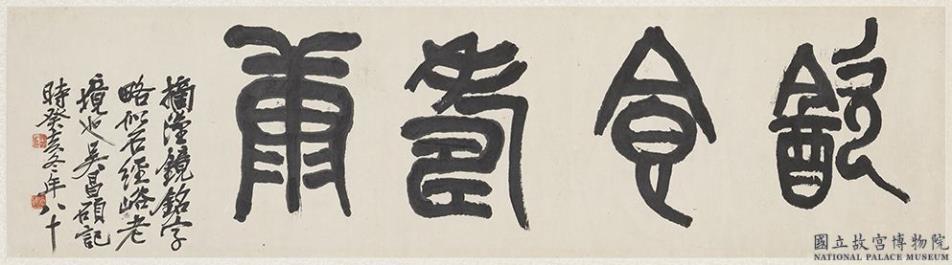 飲食壽康
摘漢鏡銘字
略似石經峪老
境也吳昌碩記
時癸亥冬年八十
國立故宮博物院
NATIONAL PALACE MUSEUM